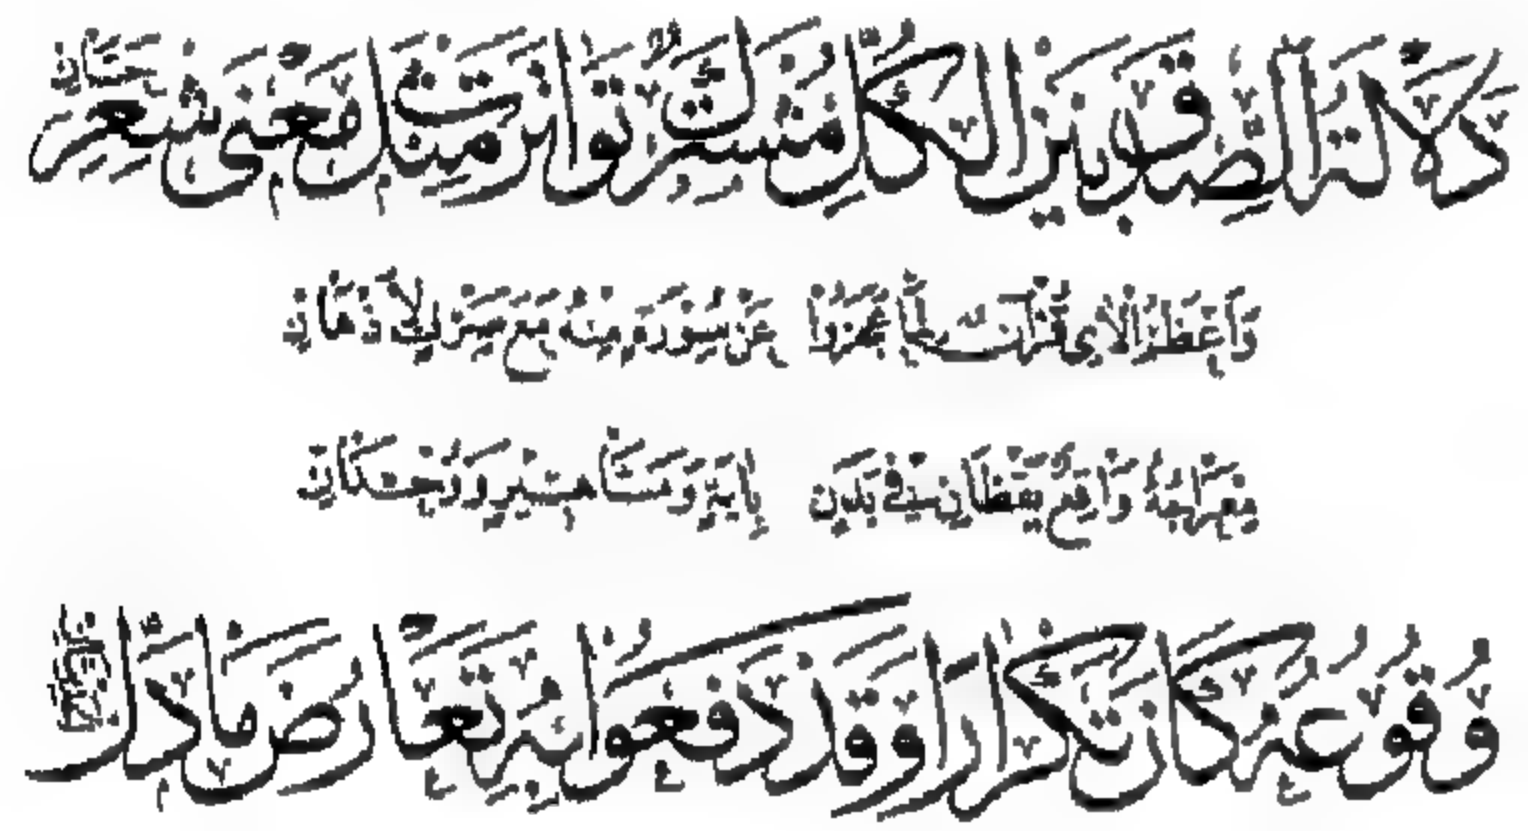 دَلَالَةُ الصِّدْقِ بَيْنَ الْكُلِّ مُشْتَرَكٌ تَوَاتَرَتْ مِثْلَ مَعْنَى شِعْرِ حَسَّانِ
وَأَعْظَمُ الْآيِ قُرْآنٌ لَمَا عَجَزُوا عَنْ سُورَةٍ مِنْهُ مَعَ لِأَذْهَانِ
مِعْرَاجُهُ وَاقِعٌ يَقْظَانَ فِي بَدَنٍ بِآيَةٍ وَمَشَاهِيرَ وَوُحْدَانِ
وُقُوعُهُ كَانَ تَكْرَارًا وَقَدْ دَفَعُوا بِهِ تَعَارُضَ مَا دَلَّ